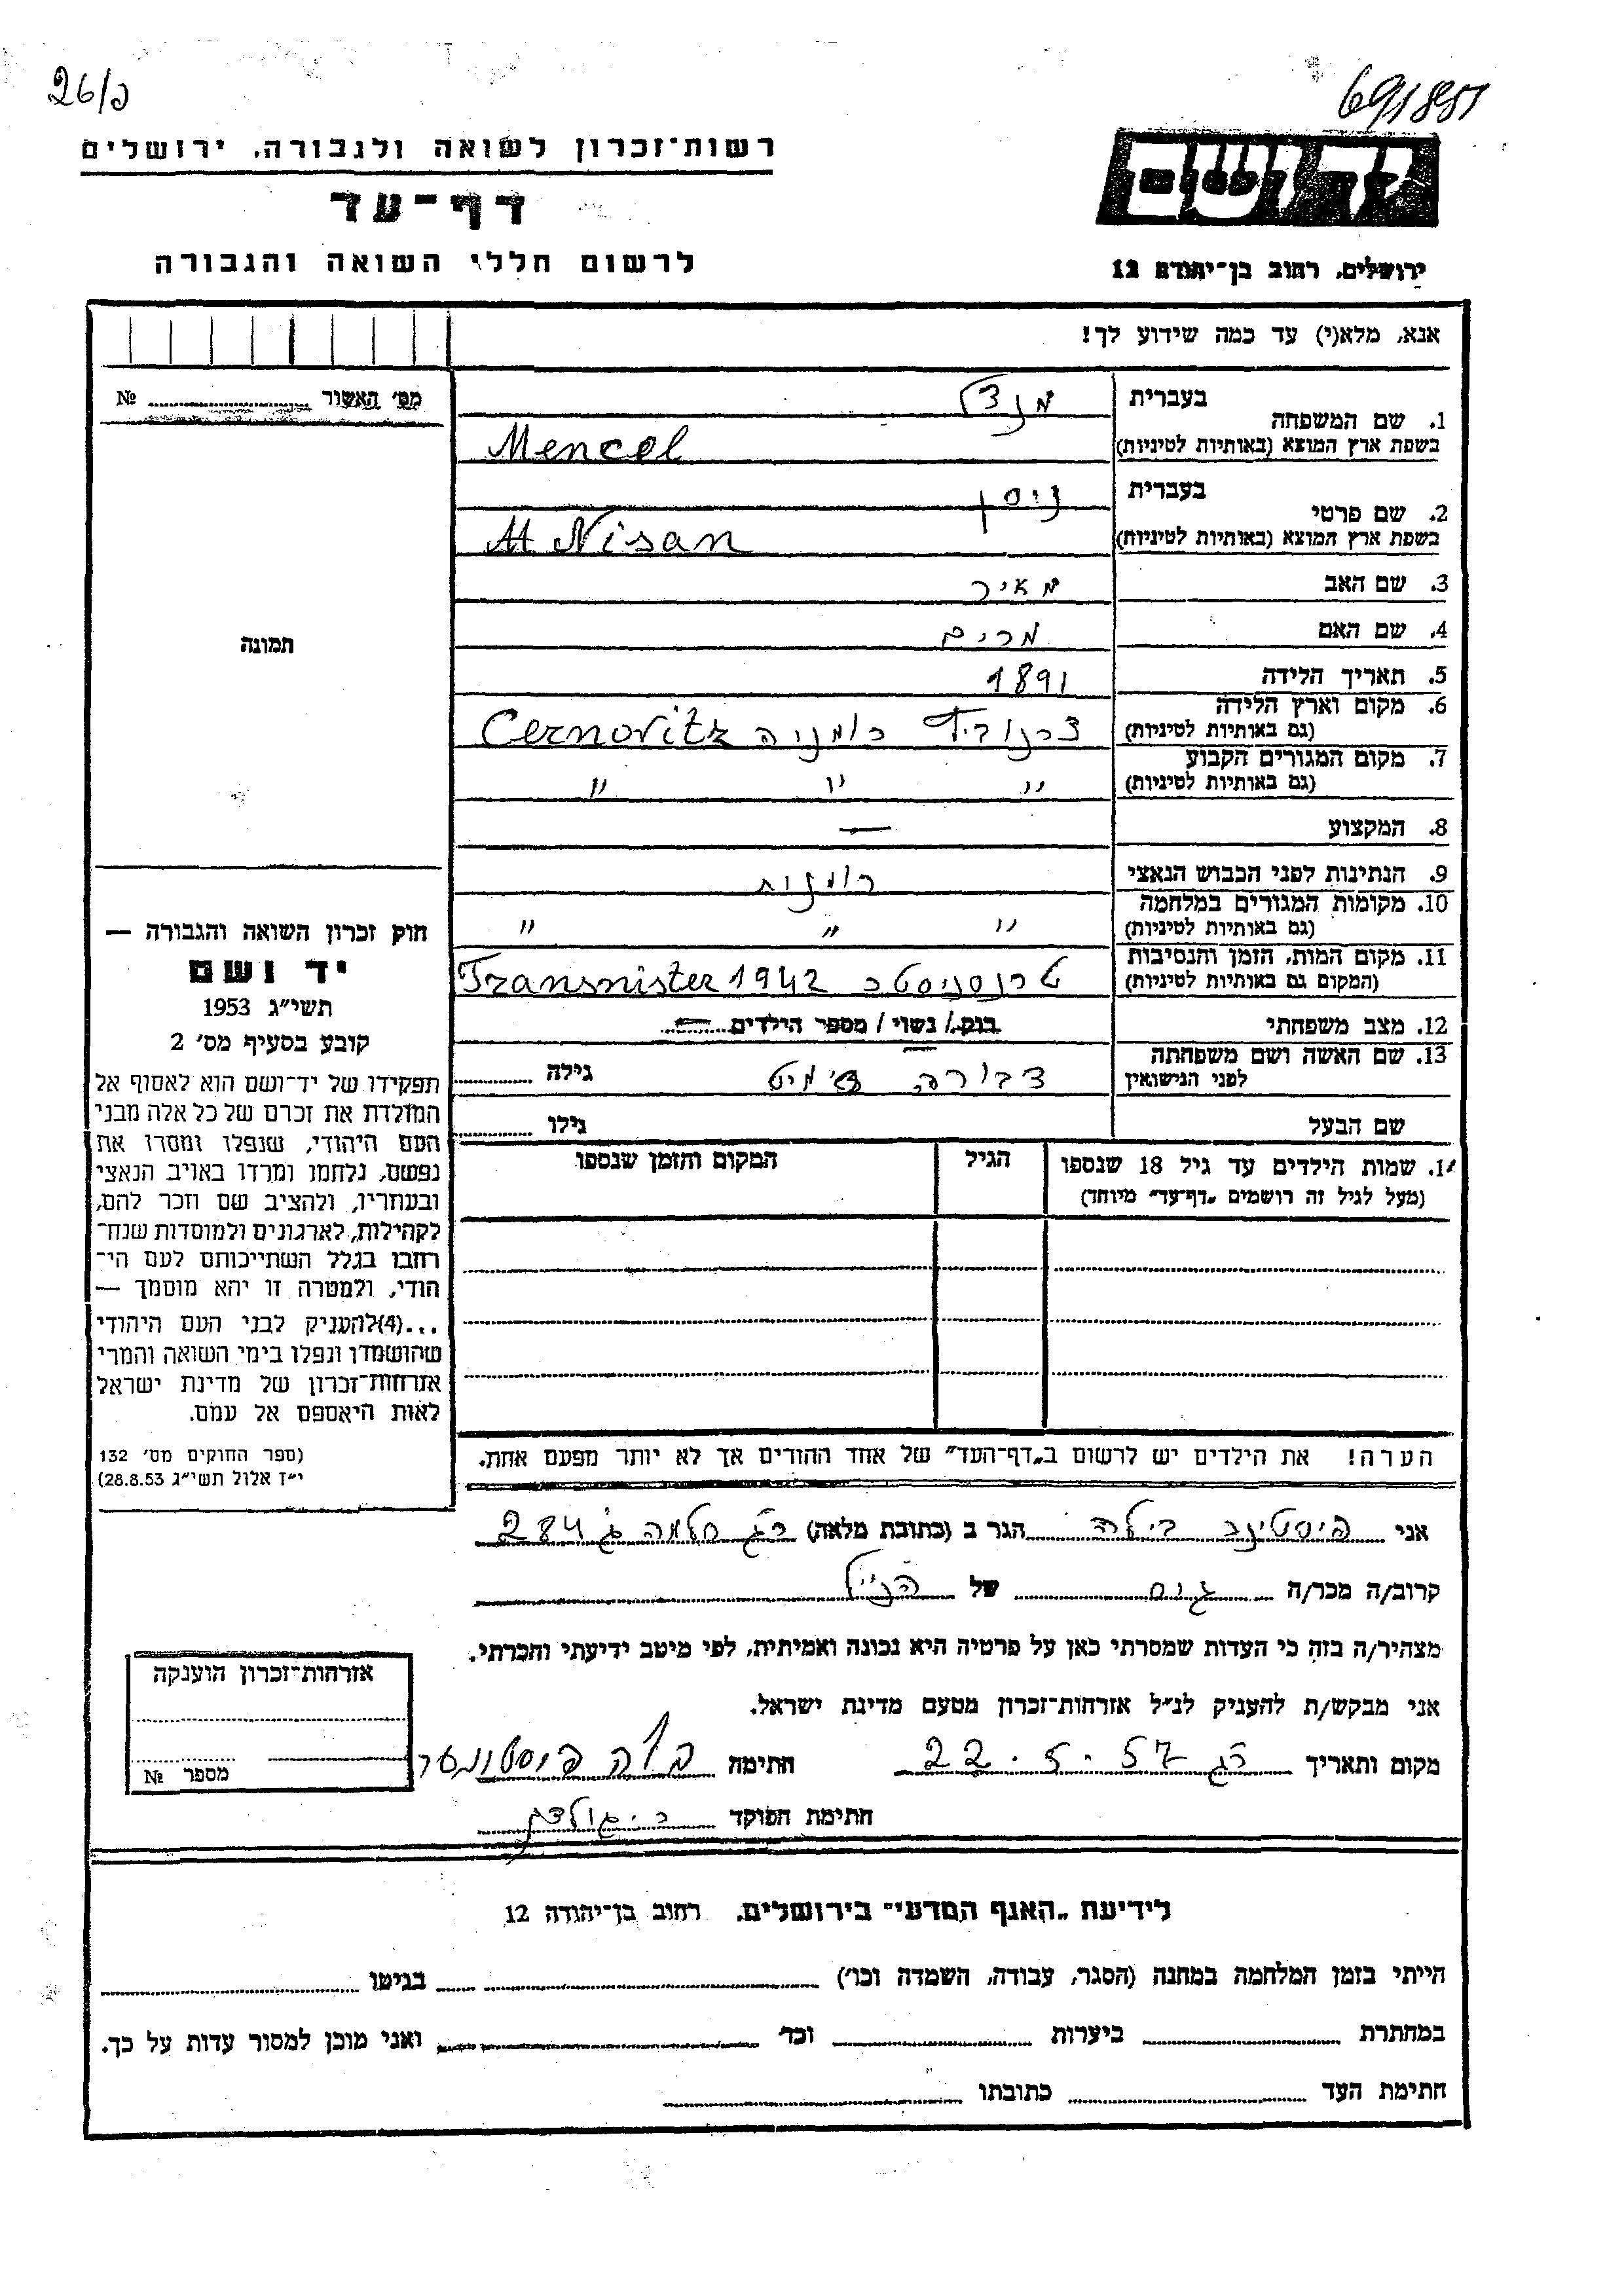 26/כ
691851
רשות־זכרון לשואה ולגבורה, ירושלים
דף־עד
לרשום חללי השואה והגבורה
יד ושם
ירושלים, רחוב בן־יהודה 12
אנא, מלא(י) עד כמה שידוע לך!
מס׳ האשור № 
תמונה
1. שם המשפחה בעברית מנצל
בשפת ארץ המוצא (באותיות לטיניות) Mencel
2. שם פרטי בעברית ניסן
בשפת ארץ המוצא (באותיות לטיניות) Nisan
3. שם האב מאיר
4. שם האם מרים
5. תאריך הלידה 1891
6. מקום וארץ הלידה
(גם באותיות לטיניות) צרנוביץ רומניה Cernovitz
7. מקום המגורים הקבוע
(גם באותיות לטיניות) " " "
8. המקצוע —
9. הנתינות לפני הכבוש הנאצי רומנית
10. מקומות המגורים במלחמה
(גם באותיות לטיניות) " " "
11. מקום המות, הזמן והנסיבות
(המקום גם באותיות לטיניות) טרנסניסטר Transnister 1942
12. מצב משפחתי רווק / נשוי / מספר הילדים —
13. שם האשה ושם משפחתה
לפני הנישואין דבורה שמיט גילה
שם הבעל גילו
14. שמות הילדים עד גיל 18 שנספו הגיל המקום והזמן שנספו
(מעל לגיל זה רושמים „דף־עד״ מיוחד)
הערה! את הילדים יש לרשום ב„דף־העד״ של אחד ההורים אך לא יותר מפעם אחת.
חוק זכרון השואה והגבורה —
יד ושם
תשי״ג 1953
קובע בסעיף מס׳ 2
תפקידו של יד־ושם הוא לאסוף אל
המולדת את זכרם של כל אלה מבני
העם היהודי, שנפלו ומסרו את
נפשם, נלחמו ומרדו באויב הנאצי
ובעוזריו, ולהציב שם וזכר להם,
לקהילות, לארגונים ולמוסדות שנח־
רבו בגלל השתייכותם לעם הי־
הודי, ולמטרה זו יהא מוסמך —
...(4)להעניק לבני העם היהודי
שהושמדו ונפלו בימי השואה והמרי
אזרחות־זכרון של מדינת ישראל
לאות היאספם אל עמם.
(ספר החוקים מס׳ 132
י״ז אלול תשי״ג 28.8.53)
אני פיסטינר בילה הגר ב (כתובת מלאה) ר״ג סלמה ג׳ 284
קרוב/ה מכר/ה גיס של הנ״ל
מצהיר/ה בזה כי העדות שמסרתי כאן על פרטיה היא נכונה ואמיתית, לפי מיטב ידיעתי והכרתי.
אני מבקש/ת להעניק לנ״ל אזרחות־זכרון מטעם מדינת ישראל.
מקום ותאריך רג 22.5.57 חתימה
חתימת הפוקד
אזרחות־זכרון הוענקה
מספר №
לידיעת „האגף המדעי״ בירושלים, רחוב בן־יהודה 12
הייתי בזמן המלחמה במחנה (הסגר, עבודה, השמדה וכו׳) בגיטו
במחתרת ביערות וכד׳ ואני מוכן למסור עדות על כך.
חתימת העד כתובתו